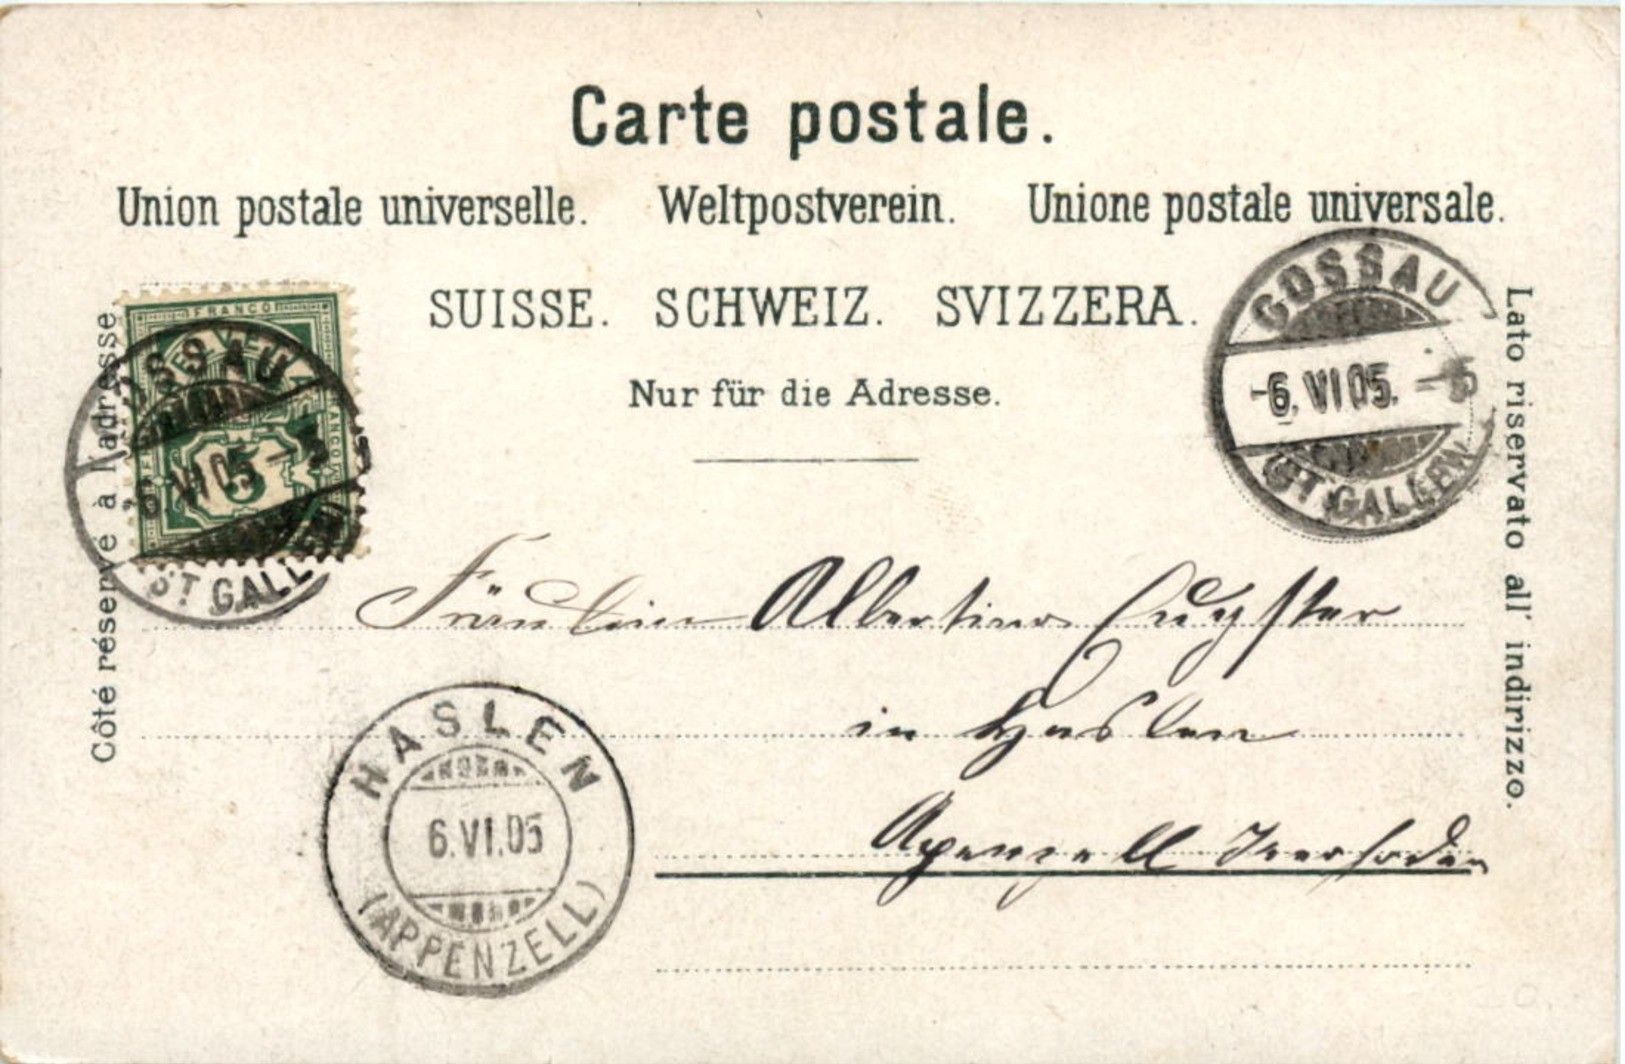 Carte postale.
Union postale universelle. Weltpostverein. Unione postale universale.
SUISSE. SCHWEIZ. SVIZZERA.
Nur für die Adresse.
Côté réservé à l'adresse.
Lato riservato all' indirizzo.
FRANCO
HELVETIA
5
GOSSAU
6.VI05.-
ST GALLEN
GOSSAU
-6.VI05.-5
(ST. GALLEN)
Fräulein Albertina Eugster
in Haslen
Apenzell Inerhoden
HASLEN
6.VI.05
(APPENZELL)